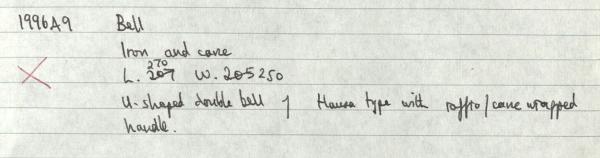 1996A9 Bell
Iron and cane
270
L. 207 W. 205 250
U-shaped double bell of Hausa type with raffia/cane wrapped
handle.